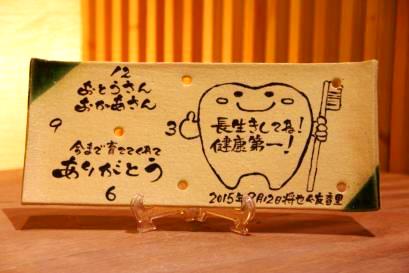 12
おとうさん
おかあさん
9
3
今まで育ててくれて
ありがとう
6
長生きしてね!
健康第一!
2015年 月12日 将也 友香里